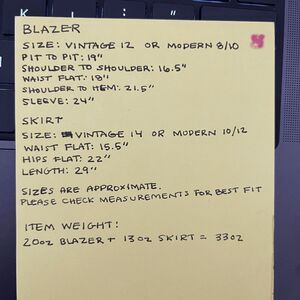 BLAZER
SIZE: VINTAGE 12 OR MODERN 8/10
PIT TO PIT: 19"
SHOULDER TO SHOULDER: 16.5"
WAIST FLAT: 18"
SHOULDER TO HEM: 21.5"
SLEEVE: 24"
SKIRT
SIZE: VINTAGE 14 OR MODERN 10/12
WAIST FLAT: 15.5"
HIPS FLAT: 22"
LENGTH: 29"
SIZES ARE APPROXIMATE.
PLEASE CHECK MEASUREMENTS FOR BEST FIT
ITEM WEIGHT:
20oz BLAZER + 13oz SKIRT = 33oz